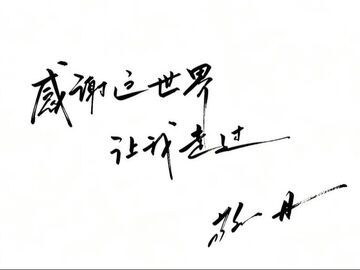 感谢这世界
让我走过
敬丹